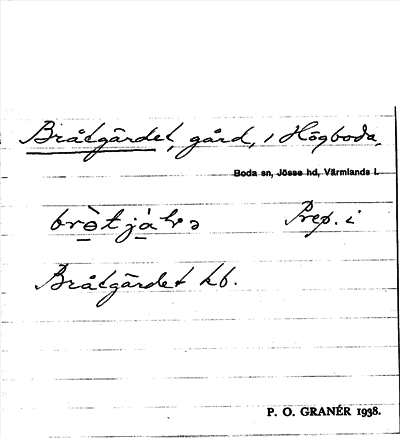 Bråtgärdet, gård, i Högboda,
Boda sn, Jösse hd, Värmlands l.
Prep. i
Bråtgärdet hb.
P. O. GRANÉR 1938.